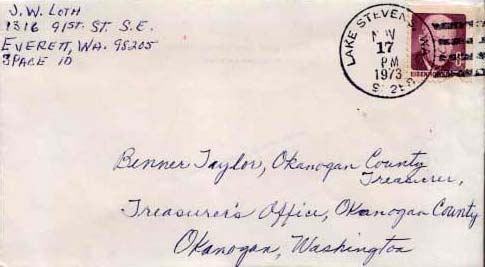 J. W. LOTH
1316 91ST. ST. S.E.
EVERETT, WA. 98205
SPACE 10
LAKE STEVENS, WA
NOV
17
PM
1973
EISENHOWER
Benner Taylor, Okanogan County
Treasurer,
Treasurer's Office, Okanogan County
Okanogan, Washington